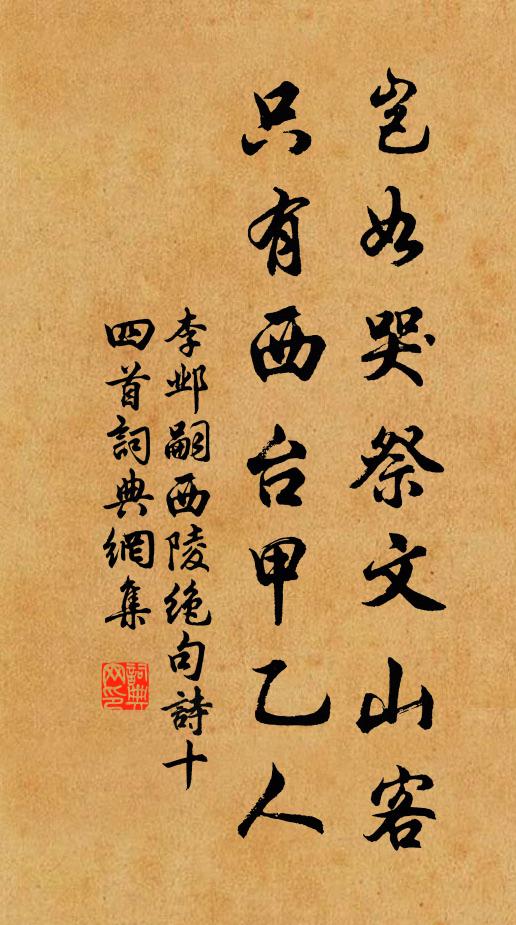 岂如哭祭文山客
只有西台甲乙人
李邺嗣西陵绝句詩十
四首詞典網集
詞典
网印